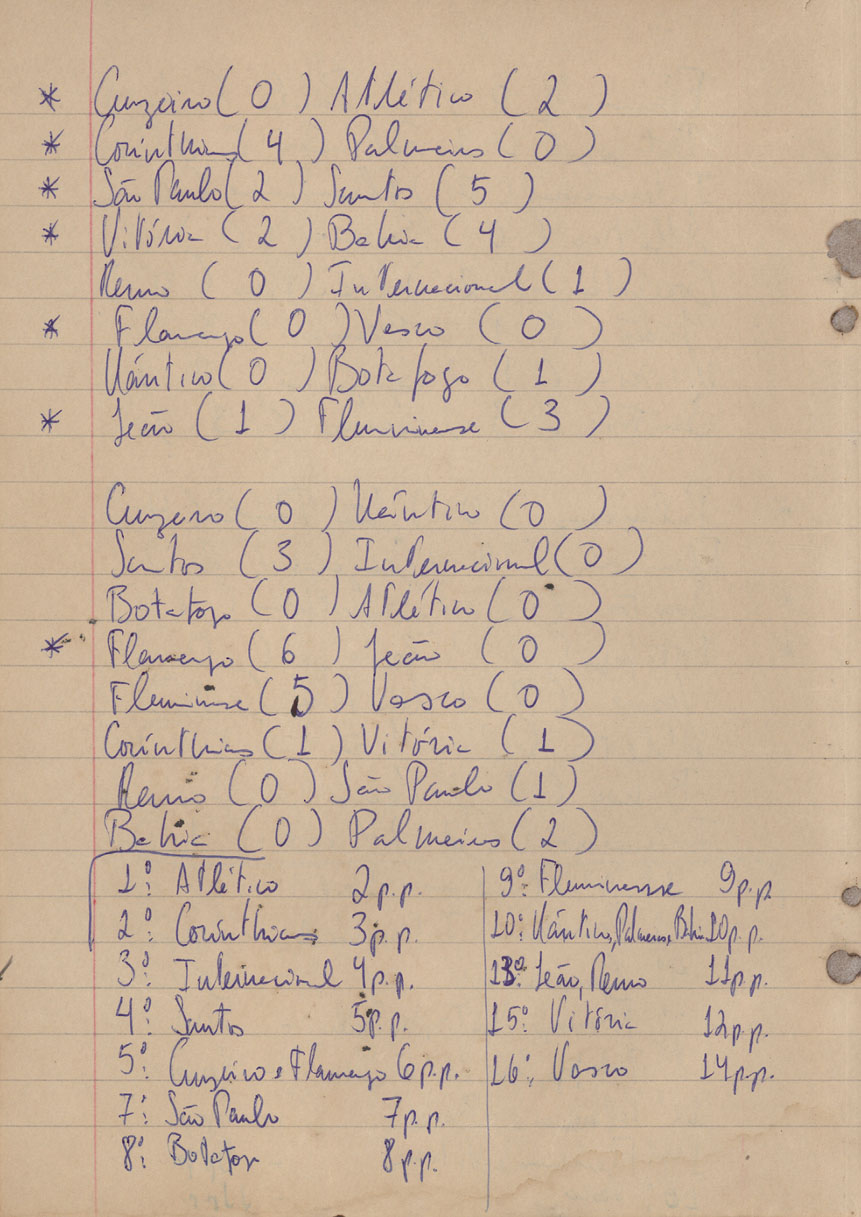 * Cruzeiro ( 0 ) Atlético ( 2 )
* Corinthians ( 4 ) Palmeiras ( 0 )
* São Paulo ( 2 ) Santos ( 5 )
* Vitória ( 2 ) Bahia ( 4 )
Remo ( 0 ) Internacional ( 1 )
* Flamengo ( 0 ) Vasco ( 0 )
Náutico ( 0 ) Botafogo ( 1 )
* Leão ( 1 ) Fluminense ( 3 )
Cruzeiro ( 0 ) Náutico ( 0 )
Santos ( 3 ) Internacional ( 0 )
Botafogo ( 0 ) Atlético ( 0 )
* Flamengo ( 6 ) Leão ( 0 )
Fluminense ( 5 ) Vasco ( 0 )
Corinthians ( 1 ) Vitória ( 1 )
Remo ( 0 ) São Paulo ( 1 )
Bahia ( 0 ) Palmeiras ( 2 )
1º: Atlético 2 p.p.
2º: Corinthians 3 p.p.
3º: Internacional 4 p.p.
4º: Santos 5 p.p.
5º: Cruzeiro e Flamengo 6 p.p.
7º: São Paulo 7 p.p.
8º: Botafogo 8 p.p.
9º: Fluminense 9 p.p.
10º: Náutico, Palmeiras, Bahia 10 p.p.
13º: Leão, Remo 11 p.p.
15º: Vitória 12 p.p.
16º: Vasco 14 p.p.